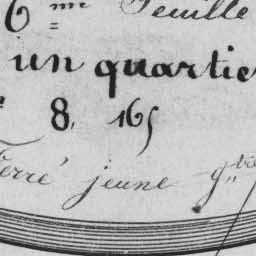 6me Feuille
un quartie
8, 165
Ferré jeune g.tre